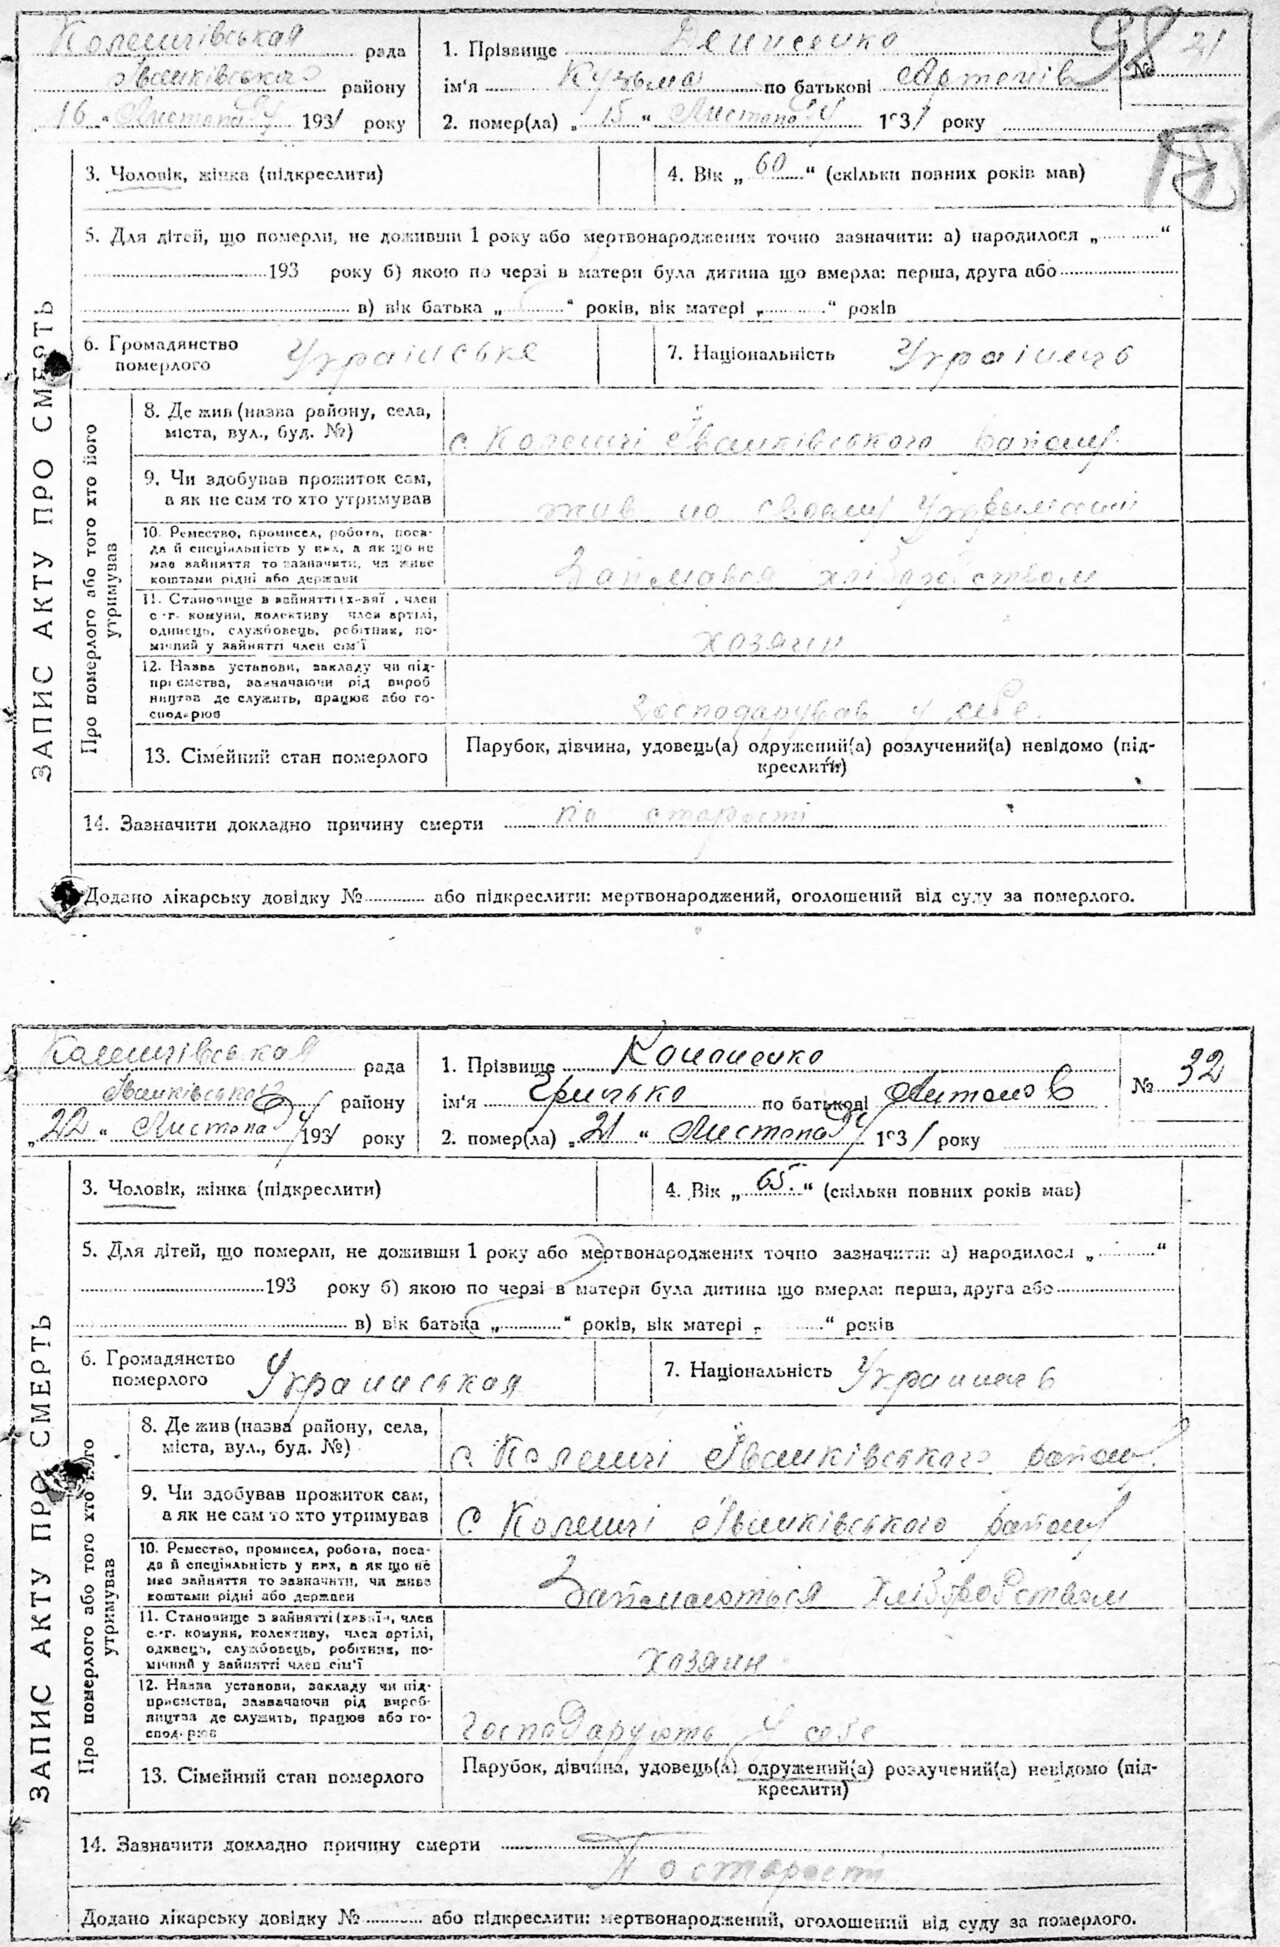 Коленчівськая рада
Іванківського району
„16“ Листопаду 1931 року
1. Прізвище Денисенко
ім'я Кузьма по батькові Артемів
2. помер(ла) „15“ Листопаду 1931 року
№ 31
98
3. Чоловік, жінка (підкреслити)
4. Вік „60“ (скільки повних років мав)
5. Для дітей, що померли, не доживши 1 року або мертвонароджених точно зазначити: а) народилося „ “
193 року б) якою по черзі в матери була дитина що вмерла: перша, друга або
в) вік батька „ “ років, вік матері „ “ років
6. Громадянство померлого Украінське
7. Національність Украінець
ЗАПИС АКТУ ПРО СМЕРТЬ
Про померлого або того хто його утримував
8. Де жив (назва району, села,
міста, вул., буд. №)
с Коленчі Іванківського району
9. Чи здобував прожиток сам,
а як не сам то хто утримував
жив на своему утрыманні
10. Ремество, промисел, робота, поса-
да й спеціяльність у них, а як що не
має зайняття то зазначити, чи живе
коштами рідні або держави
Займався хліборобством
11. Становище в зайнятті (х-ваї, член
с.-г. комуни, колективу член артілі,
одинець, службовець, робітник, по-
мічний у зайнятті член сім'ї
хозяин
12. Назва установи, закладу чи під-
приємства, зазначаючи рід вироб
ництва де служить, працює або го-
сподарює
Господарував у себе.
13. Сімейний стан померлого
Парубок, дівчина, удовець(а) одружений(а) розлучений(а) невідомо (під-
креслити)
14. Зазначити докладно причину смерти по старості
Додано лікарську довідку № або підкреслити: мертвонароджений, оголошений від суду за померлого.
Коленчівськая рада
Іванківського району
„22“ Листопаду 1931 року
1. Прізвище Кононенко
ім'я Грицько по батькові Антонов
2. помер(ла) „21“ Листопаду 1931 року
№ 32
3. Чоловік, жінка (підкреслити)
4. Вік „65.“ (скільки повних років мав)
5. Для дітей, що померли, не доживши 1 року або мертвонароджених точно зазначити: а) народилося „ “
193 року б) якою по черзі в матери була дитина що вмерла: перша, друга або
в) вік батька „ “ років, вік матері „ “ років
6. Громадянство померлого Украінськая
7. Національність Украинець
ЗАПИС АКТУ ПРО СМЕРТЬ
Про померлого або того хто його утримував
8. Де жив (назва району, села,
міста, вул., буд. №)
с. Коленчі Іванківського району.
9. Чи здобував прожиток сам,
а як не сам то хто утримував
с Коленчі Іванківського району
10. Ремество, промисел, робота, поса-
да й спеціяльність у них, а як що не
має зайняття то зазначити, чи живе
коштами рідні або держави
Займаються хліборобством
11. Становище в зайнятті (х-ваї, член
с.-г. комуни, колективу, член артілі,
одинець, службовець, робітник, по-
мічний у зайнятті член сім'ї
хозяин
12. Назва установи, закладу чи під-
приємства, зазначаючи рід вироб-
ництва де служить, працює або го-
сподарює
Господарують у себе
13. Сімейний стан померлого
Парубок, дівчина, удовець(а) одружений(а) розлучений(а) невідомо (під-
креслити)
14. Зазначити докладно причину смерти
По старости
Додано лікарську довідку № або підкреслити: мертвонароджений, оголошений від суду за померлого.